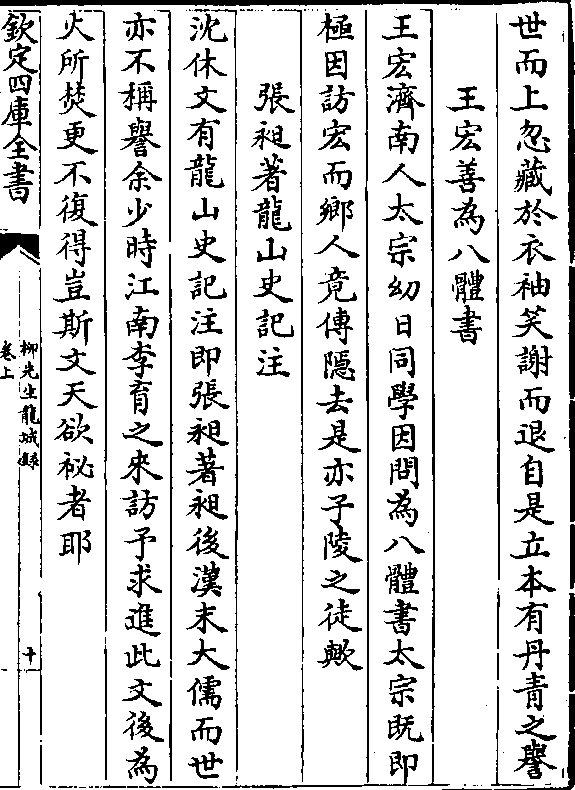 世而上忽藏於衣袖笑謝而退自是立本有丹青之譽
王宏善為八體書
王宏濟南人太宗幼日同學因問為八體書太宗既即
極因訪宏而鄉人竟傳隱去是亦子陵之徒歟
張昶著龍山史記注
沈休文有龍山史記注即張昶著昶後漢末大儒而世
亦不稱譽余少時江南李育之來訪予求進此文後為
火所焚更不復得豈斯文天欲祕者耶
欽定四庫全書
柳先生龍城錄
卷上
十